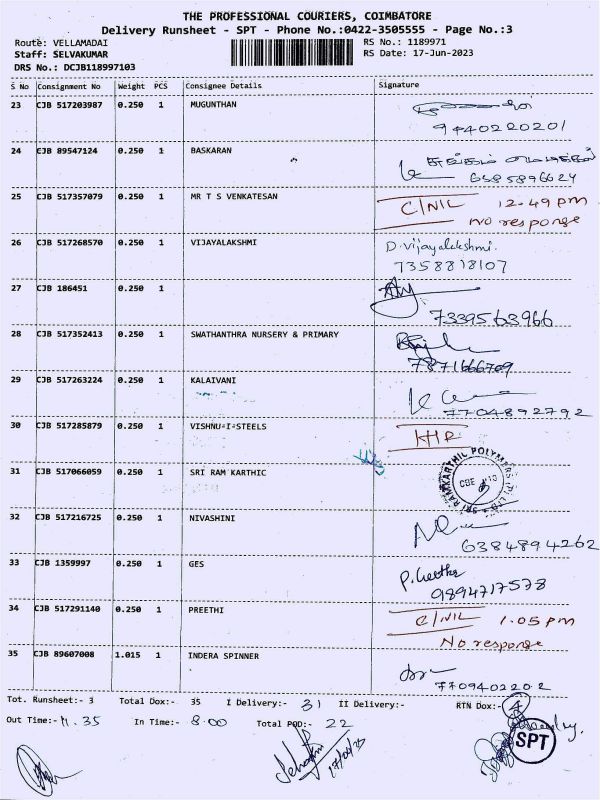 THE PROFESSIONAL COURIERS, COIMBATORE
Delivery Runsheet - SPT - Phone No.:0422-3505555 - Page No.:3
Route: VELLAMADAI
RS No.: 1189971
Staff: SELVAKUMAR
RS Date: 17-Jun-2023
DRS No.: DCJB118997103
S No Consignment No Weight PCS Consignee Details Signature
23 CJB 517203987 0.250 1 MUGUNTHAN
9440220201
24 CJB 89547124 0.250 1 BASKARAN
6385896624
25 CJB 517357079 0.250 1 MR T S VENKATESAN C/NIL 12.49 pm
No response
26 CJB 517268570 0.250 1 VIJAYALAKSHMI D.Vijayalakshmi.
7358818107
27 CJB 186451 0.250 1
7339563966
28 CJB 517352413 0.250 1 SWATHANTHRA NURSERY & PRIMARY
7871666709
29 CJB 517263224 0.250 1 KALAIVANI
7704892792
30 CJB 517285879 0.250 1 VISHNU-I-STEELS
31 CJB 517066059 0.250 1 SRI RAM KARTHIC
32 CJB 517216725 0.250 1 NIVASHINI
6384894262
33 CJB 1359997 0.250 1 GES P.Geetha
9894717578
34 CJB 517291140 0.250 1 PREETHI C/NIL 1.05 pm
No response
35 CJB 89607008 1.015 1 INDERA SPINNER
7709402202
Tot. Runsheet:- 3 Total Dox:- 35 I Delivery:- 31 II Delivery:- RTN Dox:- 4
Out Time:- 11.35 In Time:- 8.00 Total POD:- 22
SPT